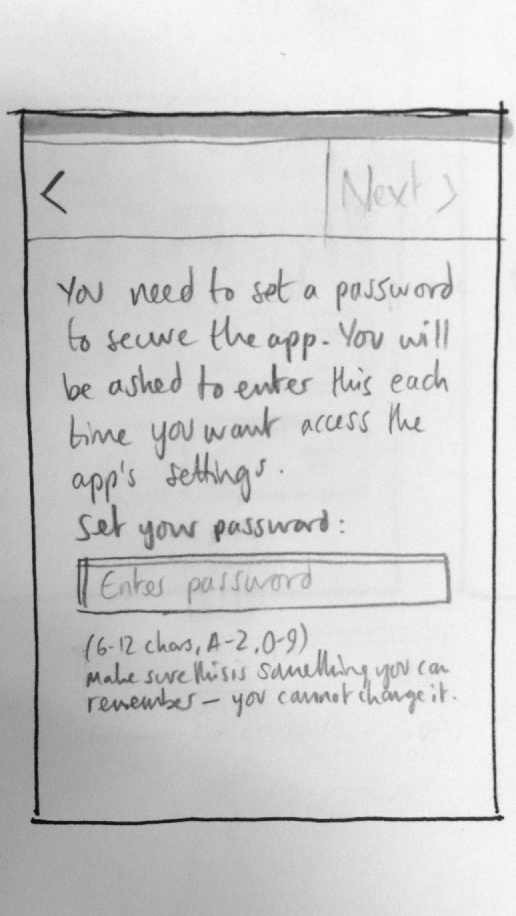 < Next >
You need to set a password
to secure the app. You will
be asked to enter this each
time you want access the
app's settings.
Set your password:
Enter password
(6-12 chars, A-Z, 0-9)
Make sure this is something you can
remember – you cannot change it.